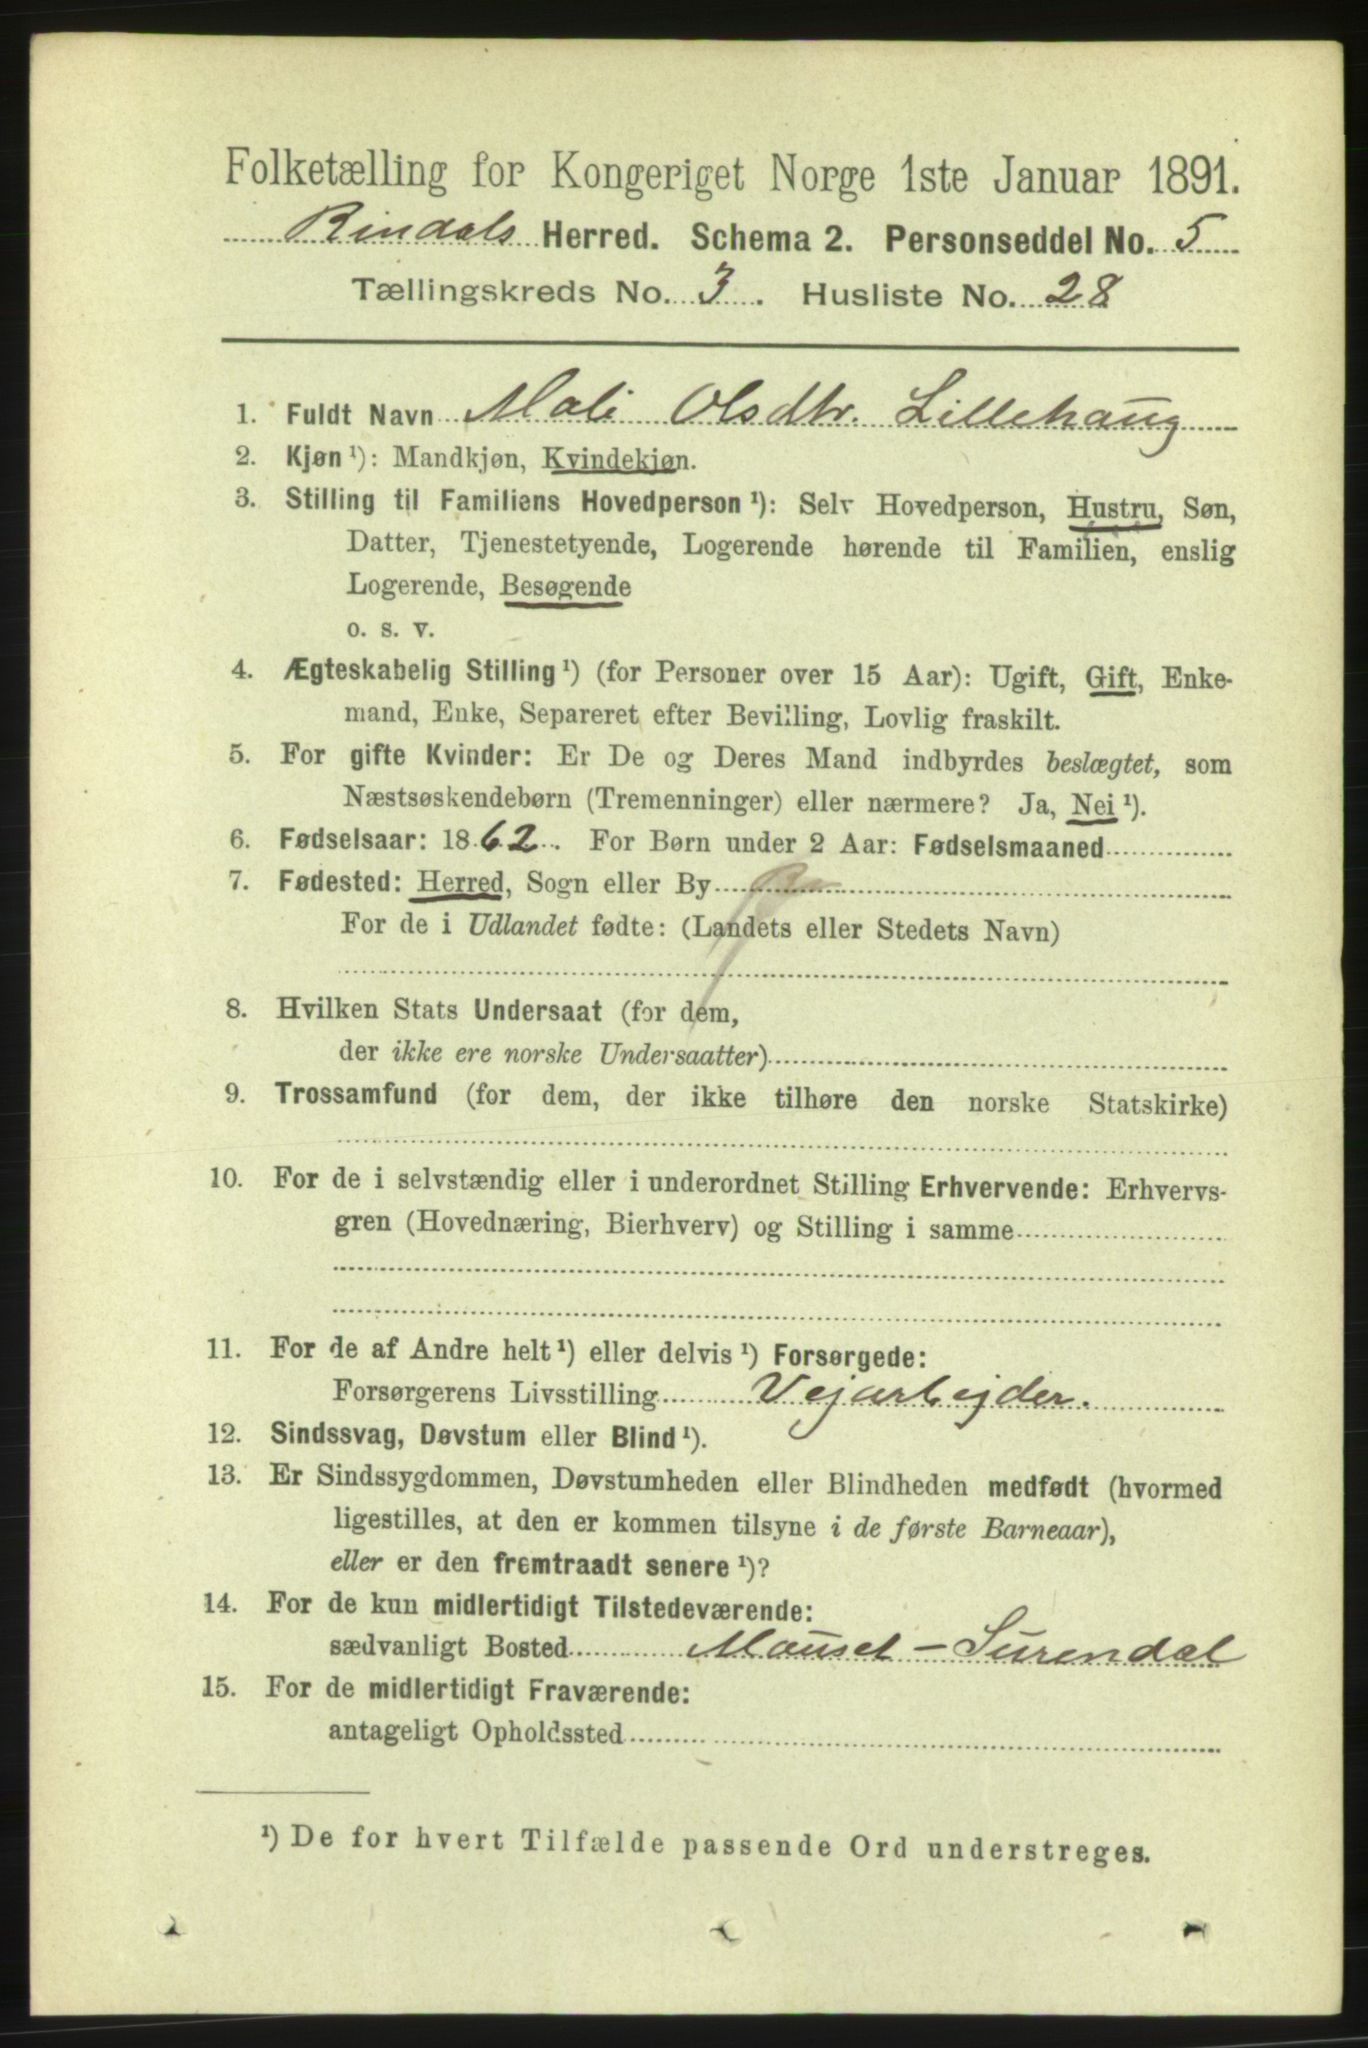 Folketælling for Kongeriget Norge 1ste Januar 1891.
Rindals Herred. Schema 2. Personseddel No. 5
Tællingskreds No. 3. Husliste No. 28
1. Fuldt Navn Mali Olsdtr. Lillehaug
2. Kjøn ¹): Mandkjøn, Kvindekjøn.
3. Stilling til Familiens Hovedperson ¹): Selv Hovedperson, Hustru, Søn,
Datter, Tjenestetyende, Logerende hørende til Familien, enslig
Logerende, Besøgende
o. s. v.
4. Ægteskabelig Stilling ¹) (for Personer over 15 Aar): Ugift, Gift, Enke-
mand, Enke, Separeret efter Bevilling, Lovlig fraskilt.
5. For gifte Kvinder: Er De og Deres Mand indbyrdes beslægtet, som
Næstsøskendebørn (Tremenninger) eller nærmere? Ja, Nei ¹).
6. Fødselsaar: 1862. For Børn under 2 Aar: Fødselsmaaned
7. Fødested: Herred, Sogn eller By
For de i Udlandet fødte: (Landets eller Stedets Navn)
8. Hvilken Stats Undersaat (for dem,
der ikke ere norske Undersaatter)
9. Trossamfund (for dem, der ikke tilhøre den norske Statskirke)
10. For de i selvstændig eller i underordnet Stilling Erhvervende: Erhvervs-
gren (Hovednæring, Bierhverv) og Stilling i samme
11. For de af Andre helt ¹) eller delvis ¹) Forsørgede:
Forsørgerens Livsstilling Vejarbejder.
12. Sindssvag, Døvstum eller Blind ¹).
13. Er Sindssygdommen, Døvstumheden eller Blindheden medfødt (hvormed
ligestilles, at den er kommen tilsyne i de første Barneaar),
eller er den fremtraadt senere ¹)?
14. For de kun midlertidigt Tilstedeværende:
sædvanligt Bosted Mauset - Surendal
15. For de midlertidigt Fraværende:
antageligt Opholdssted
¹) De for hvert Tilfælde passende Ord understreges.